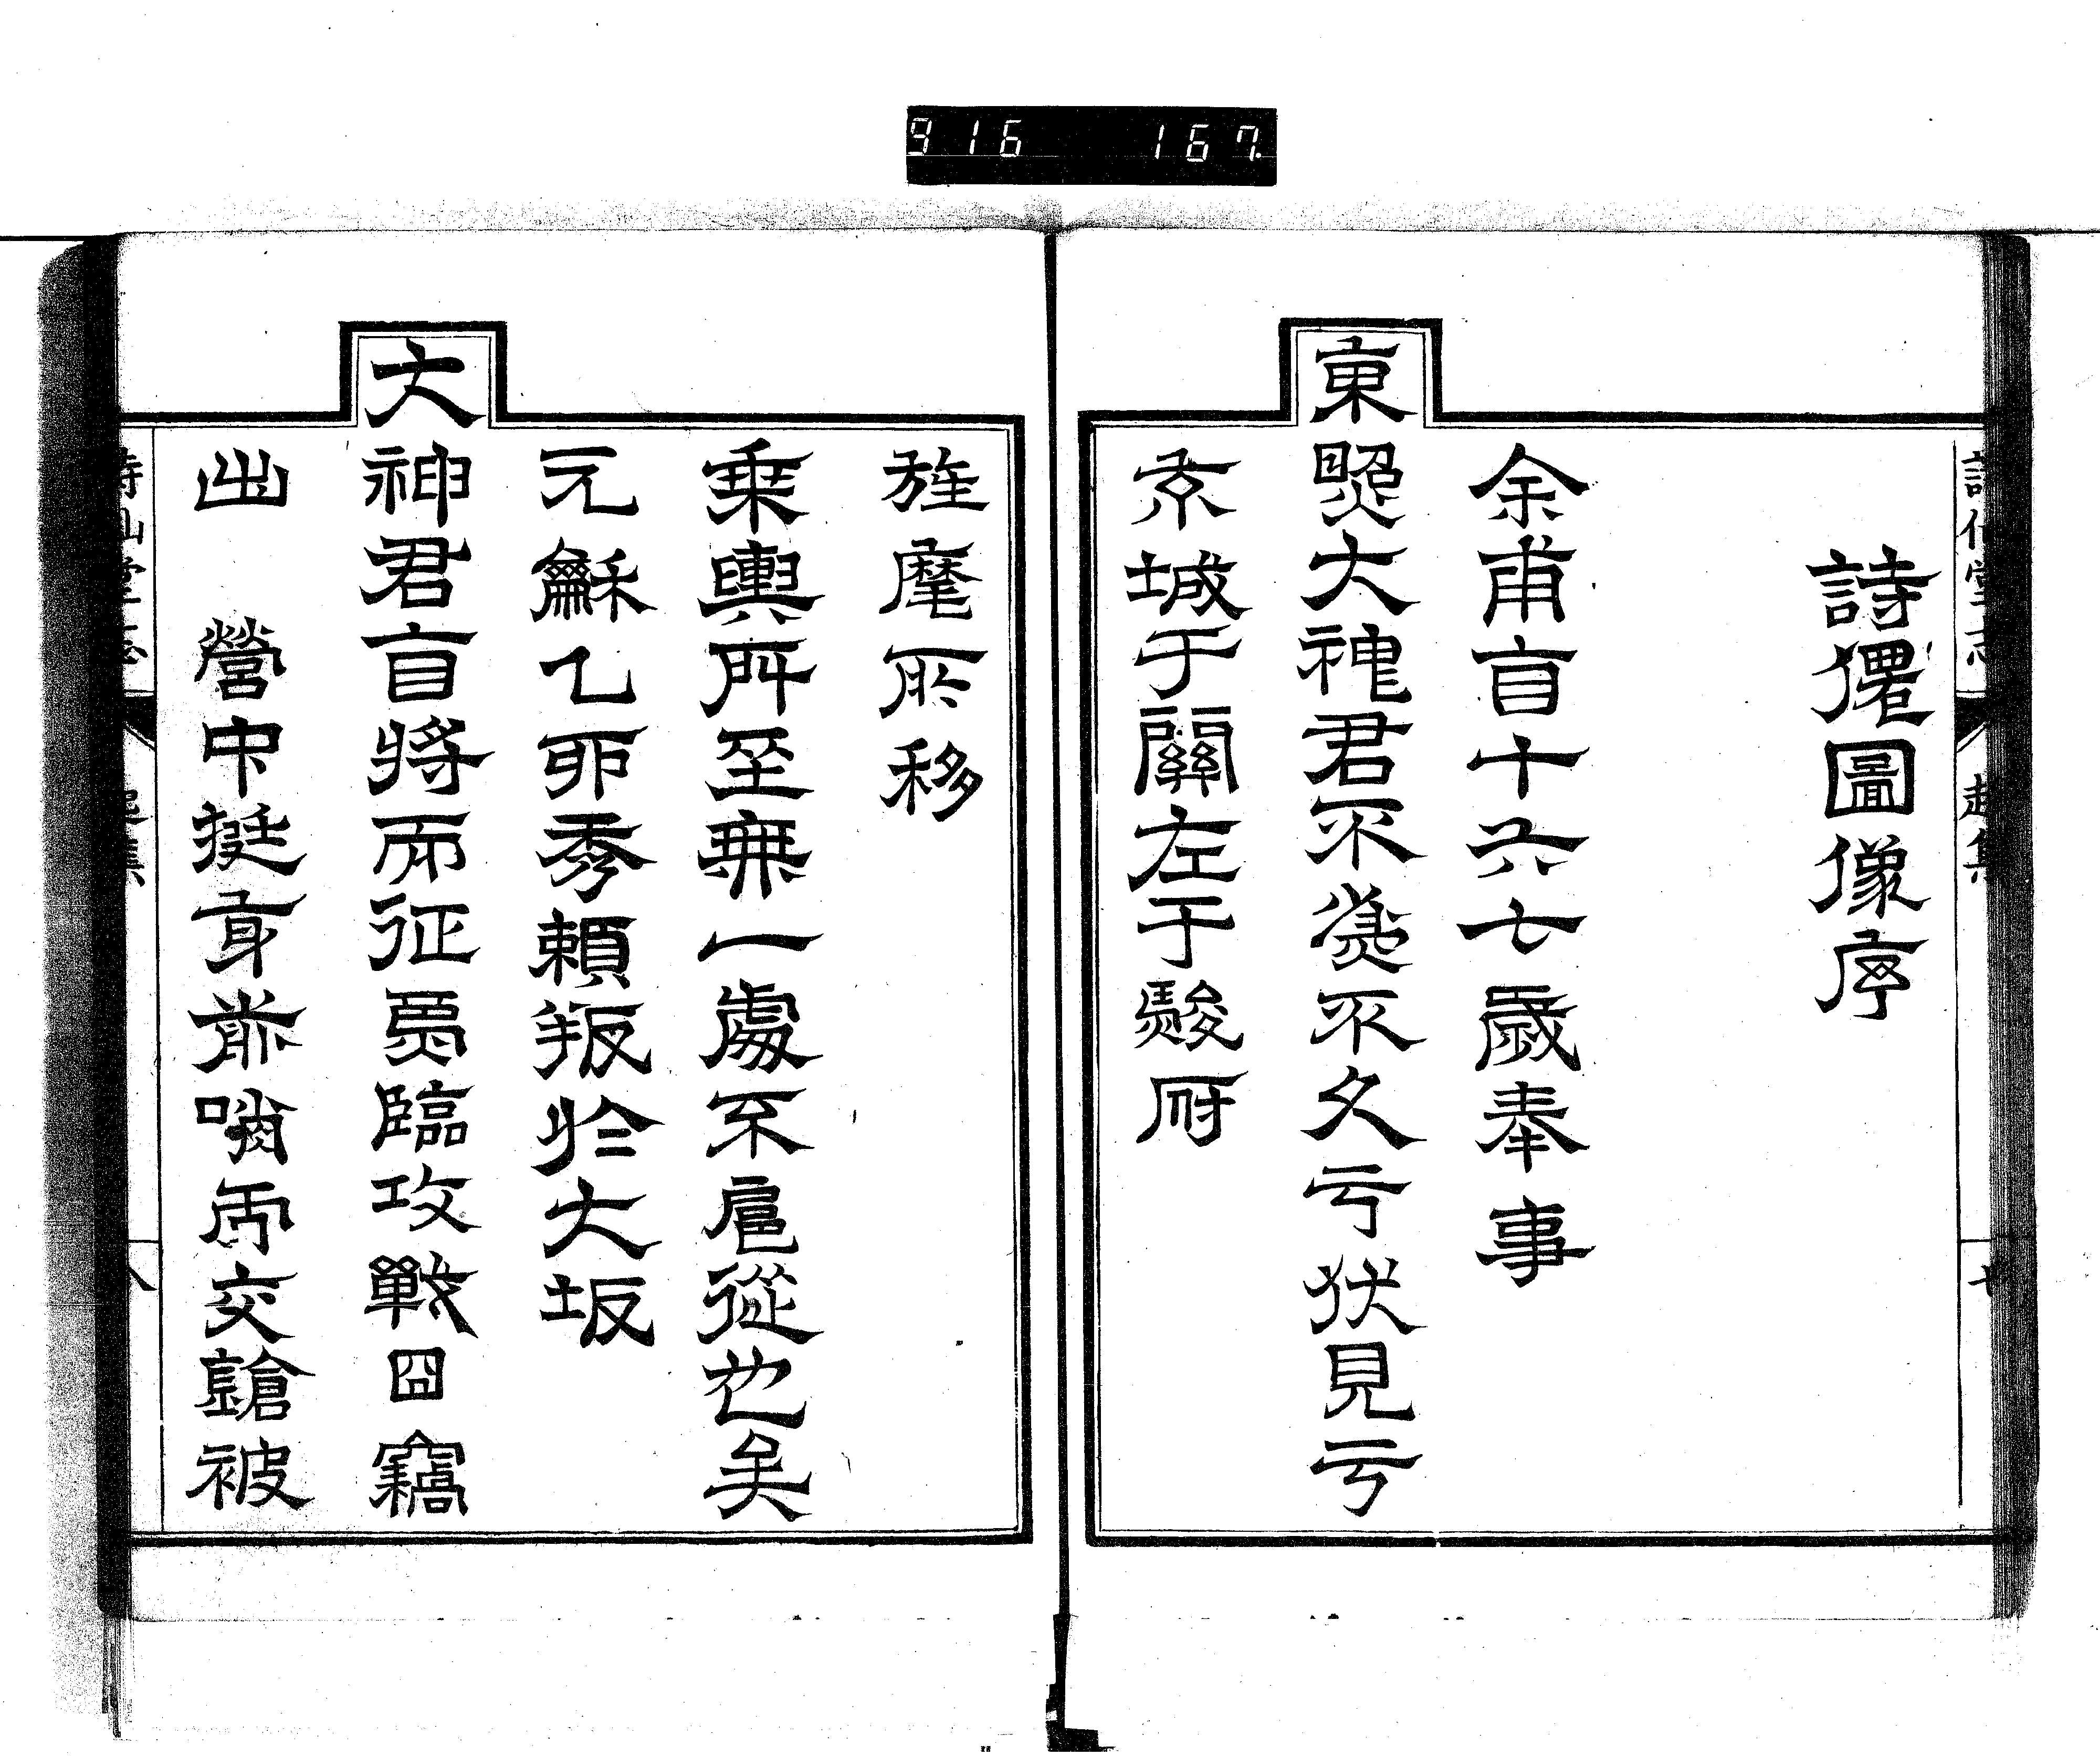 916 167
詩仙堂志 起集 七
詩僊圖像序
余甫百十六七歲奉事
東照大神君不幾不久亏伏見亏
京城于關左于駿府
旌麾所移
乘輿所至無一處不扈從也矣
元龢乙卯秀賴叛於大坂
大神君百將而征焉臨攻戰囧竊
出 營中挺身前哨兩交鎗被
詩仙堂志 起集 八